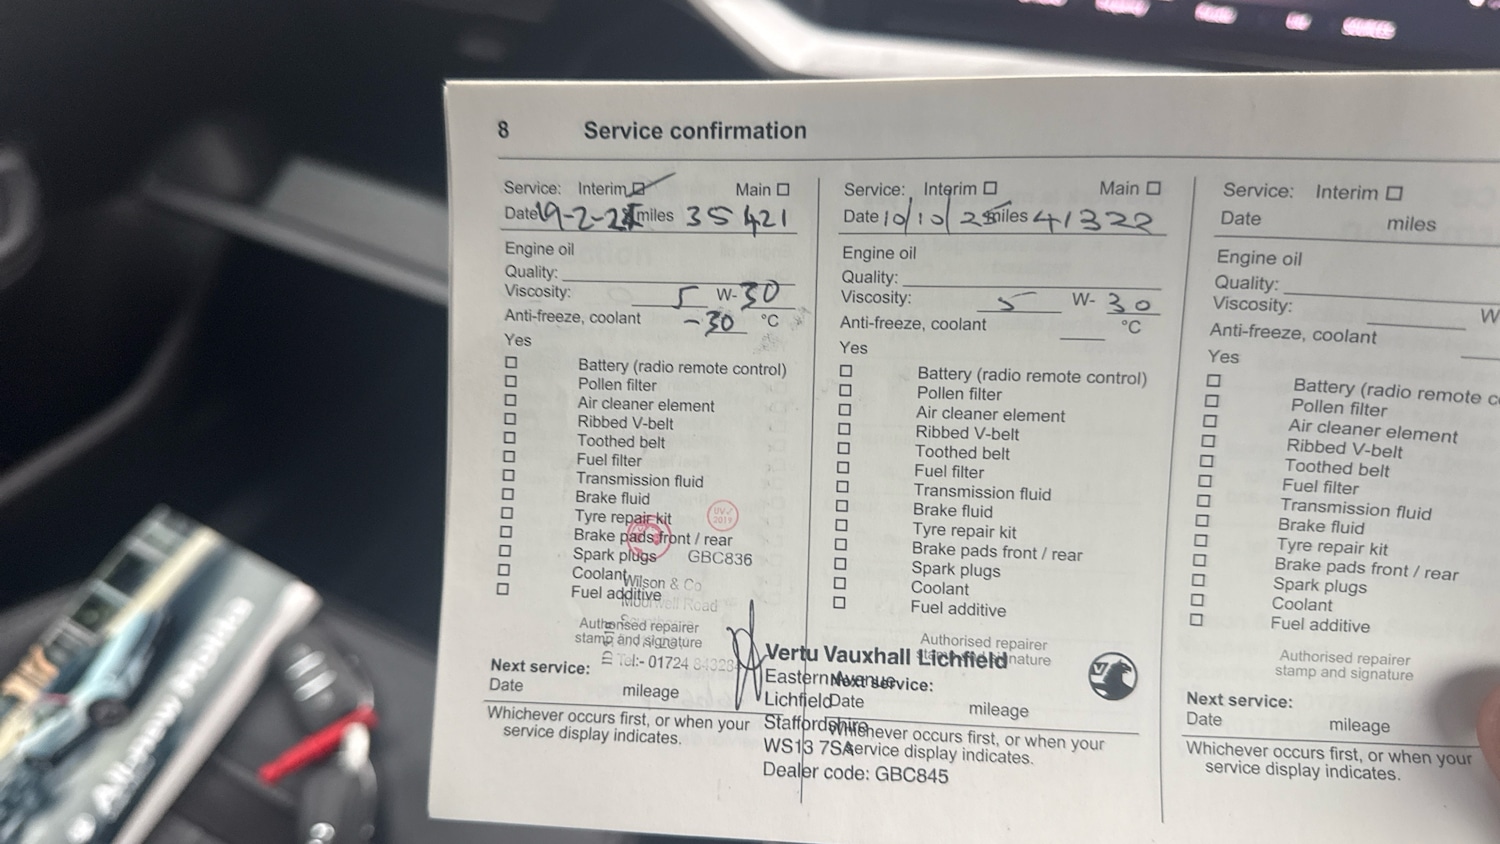 8 Service confirmation
Service: Interim Main
Date 19-2- miles 35 421
Engine oil
Quality:
Viscosity: 5 W- 30
Anti-freeze, coolant -30 °C
Yes
Battery (radio remote control)
Pollen filter
Air cleaner element
Ribbed V-belt
Toothed belt
Fuel filter
Transmission fluid
Brake fluid
Tyre repair kit
Brake pads front / rear
Spark plugs GBC836
Coolant
Fuel additive
UV✓
2019
Wilson & Co
Road
Authorised repairer
stamp and signature
Tel:- 01724
Next service:
Date mileage
Whichever occurs first, or when your
service display indicates.
Service: Interim Main
Date 10/10/25 miles 41322
Engine oil
Quality:
Viscosity: 5 W- 30
Anti-freeze, coolant °C
Yes
Battery (radio remote control)
Pollen filter
Air cleaner element
Ribbed V-belt
Toothed belt
Fuel filter
Transmission fluid
Brake fluid
Tyre repair kit
Brake pads front / rear
Spark plugs
Coolant
Fuel additive
Authorised repairer
stamp and signature
Vertu Vauxhall Lichfield
Eastern Avenue
Lichfield
Staffordshire
WS13 7SA
Dealer code: GBC845
Next service:
Date mileage
Whichever occurs first, or when your
service display indicates.
Service: Interim
Date miles
Engine oil
Quality:
Viscosity: W
Anti-freeze, coolant
Yes
Battery (radio remote c
Pollen filter
Air cleaner element
Ribbed V-belt
Toothed belt
Fuel filter
Transmission fluid
Brake fluid
Tyre repair kit
Brake pads front / rear
Spark plugs
Coolant
Fuel additive
Authorised repairer
stamp and signature
Next service:
Date mileage
Whichever occurs first, or when your
service display indicates.